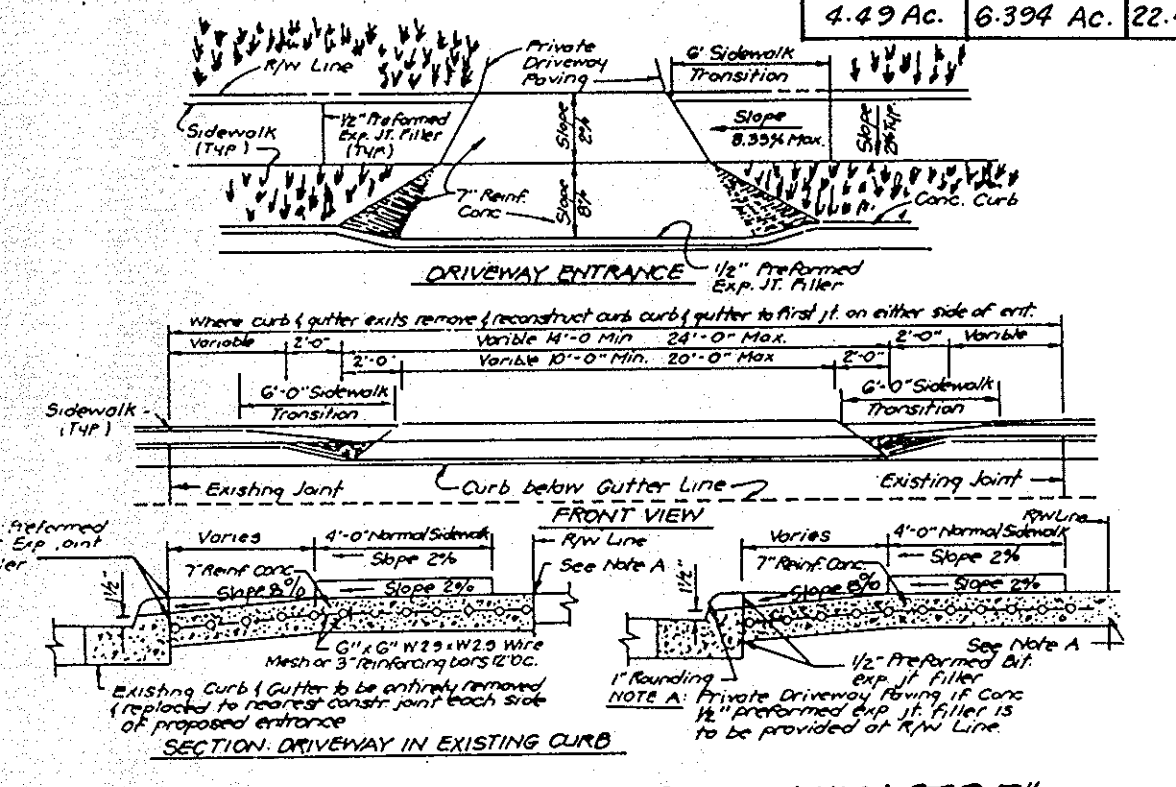 4.49 Ac. 6.394 Ac. 22.
R/W Line
Private
Driveway
Paving
6' Sidewalk
Transition
Sidewalk
(TYP)
1/2" Preformed
Exp. JT. Filler
(TYP)
Slope
2%
Slope
8.33% Max.
Slope
2% Typ.
7" Reinf.
Conc
Slope
8%
Conc. Curb
DRIVEWAY ENTRANCE
1/2" Preformed
Exp. JT. Filler
Where curb & gutter exits remove & reconstruct curb curb & gutter to first jt. on either side of ent.
Variable 2'-0" Varible 14'-0 Min 24'-0" Max. 2'-0" Varible
2'-0" Varible 10'-0" Min. 20'-0" Max 2'-0"
6'-0" Sidewalk
Transition
6'-0" Sidewalk
Transition
Sidewalk
(TYP)
Existing Joint
Curb below Gutter Line
Existing Joint
FRONT VIEW
Preformed
Exp. oint
ler
Varies
4'-0" Normal Sidewalk
R/W Line
Slope 2%
See Note A
7" Reinf. Conc
Slope 8%
Slope 2%
1 1/2"
6" x 6" W2.9 x W2.9 Wire
Mesh or 3" reinforcing bars 12" OC.
Existing Curb & Gutter to be entirely removed
& replaced to nearest constr. joint each side
of proposed entrance
SECTION: DRIVEWAY IN EXISTING CURB
Varies
4'-0" Normal Sidewalk
R/W Line
Slope 2%
7" Reinf. Conc
Slope 8%
Slope 2%
1 1/2"
See Note A
1/2" Preformed Bit.
exp. jt filler
1" Rounding
NOTE A: Private Driveway Paving if Conc
1/2" preformed exp. jt. filler is
to be provided at R/W Line.